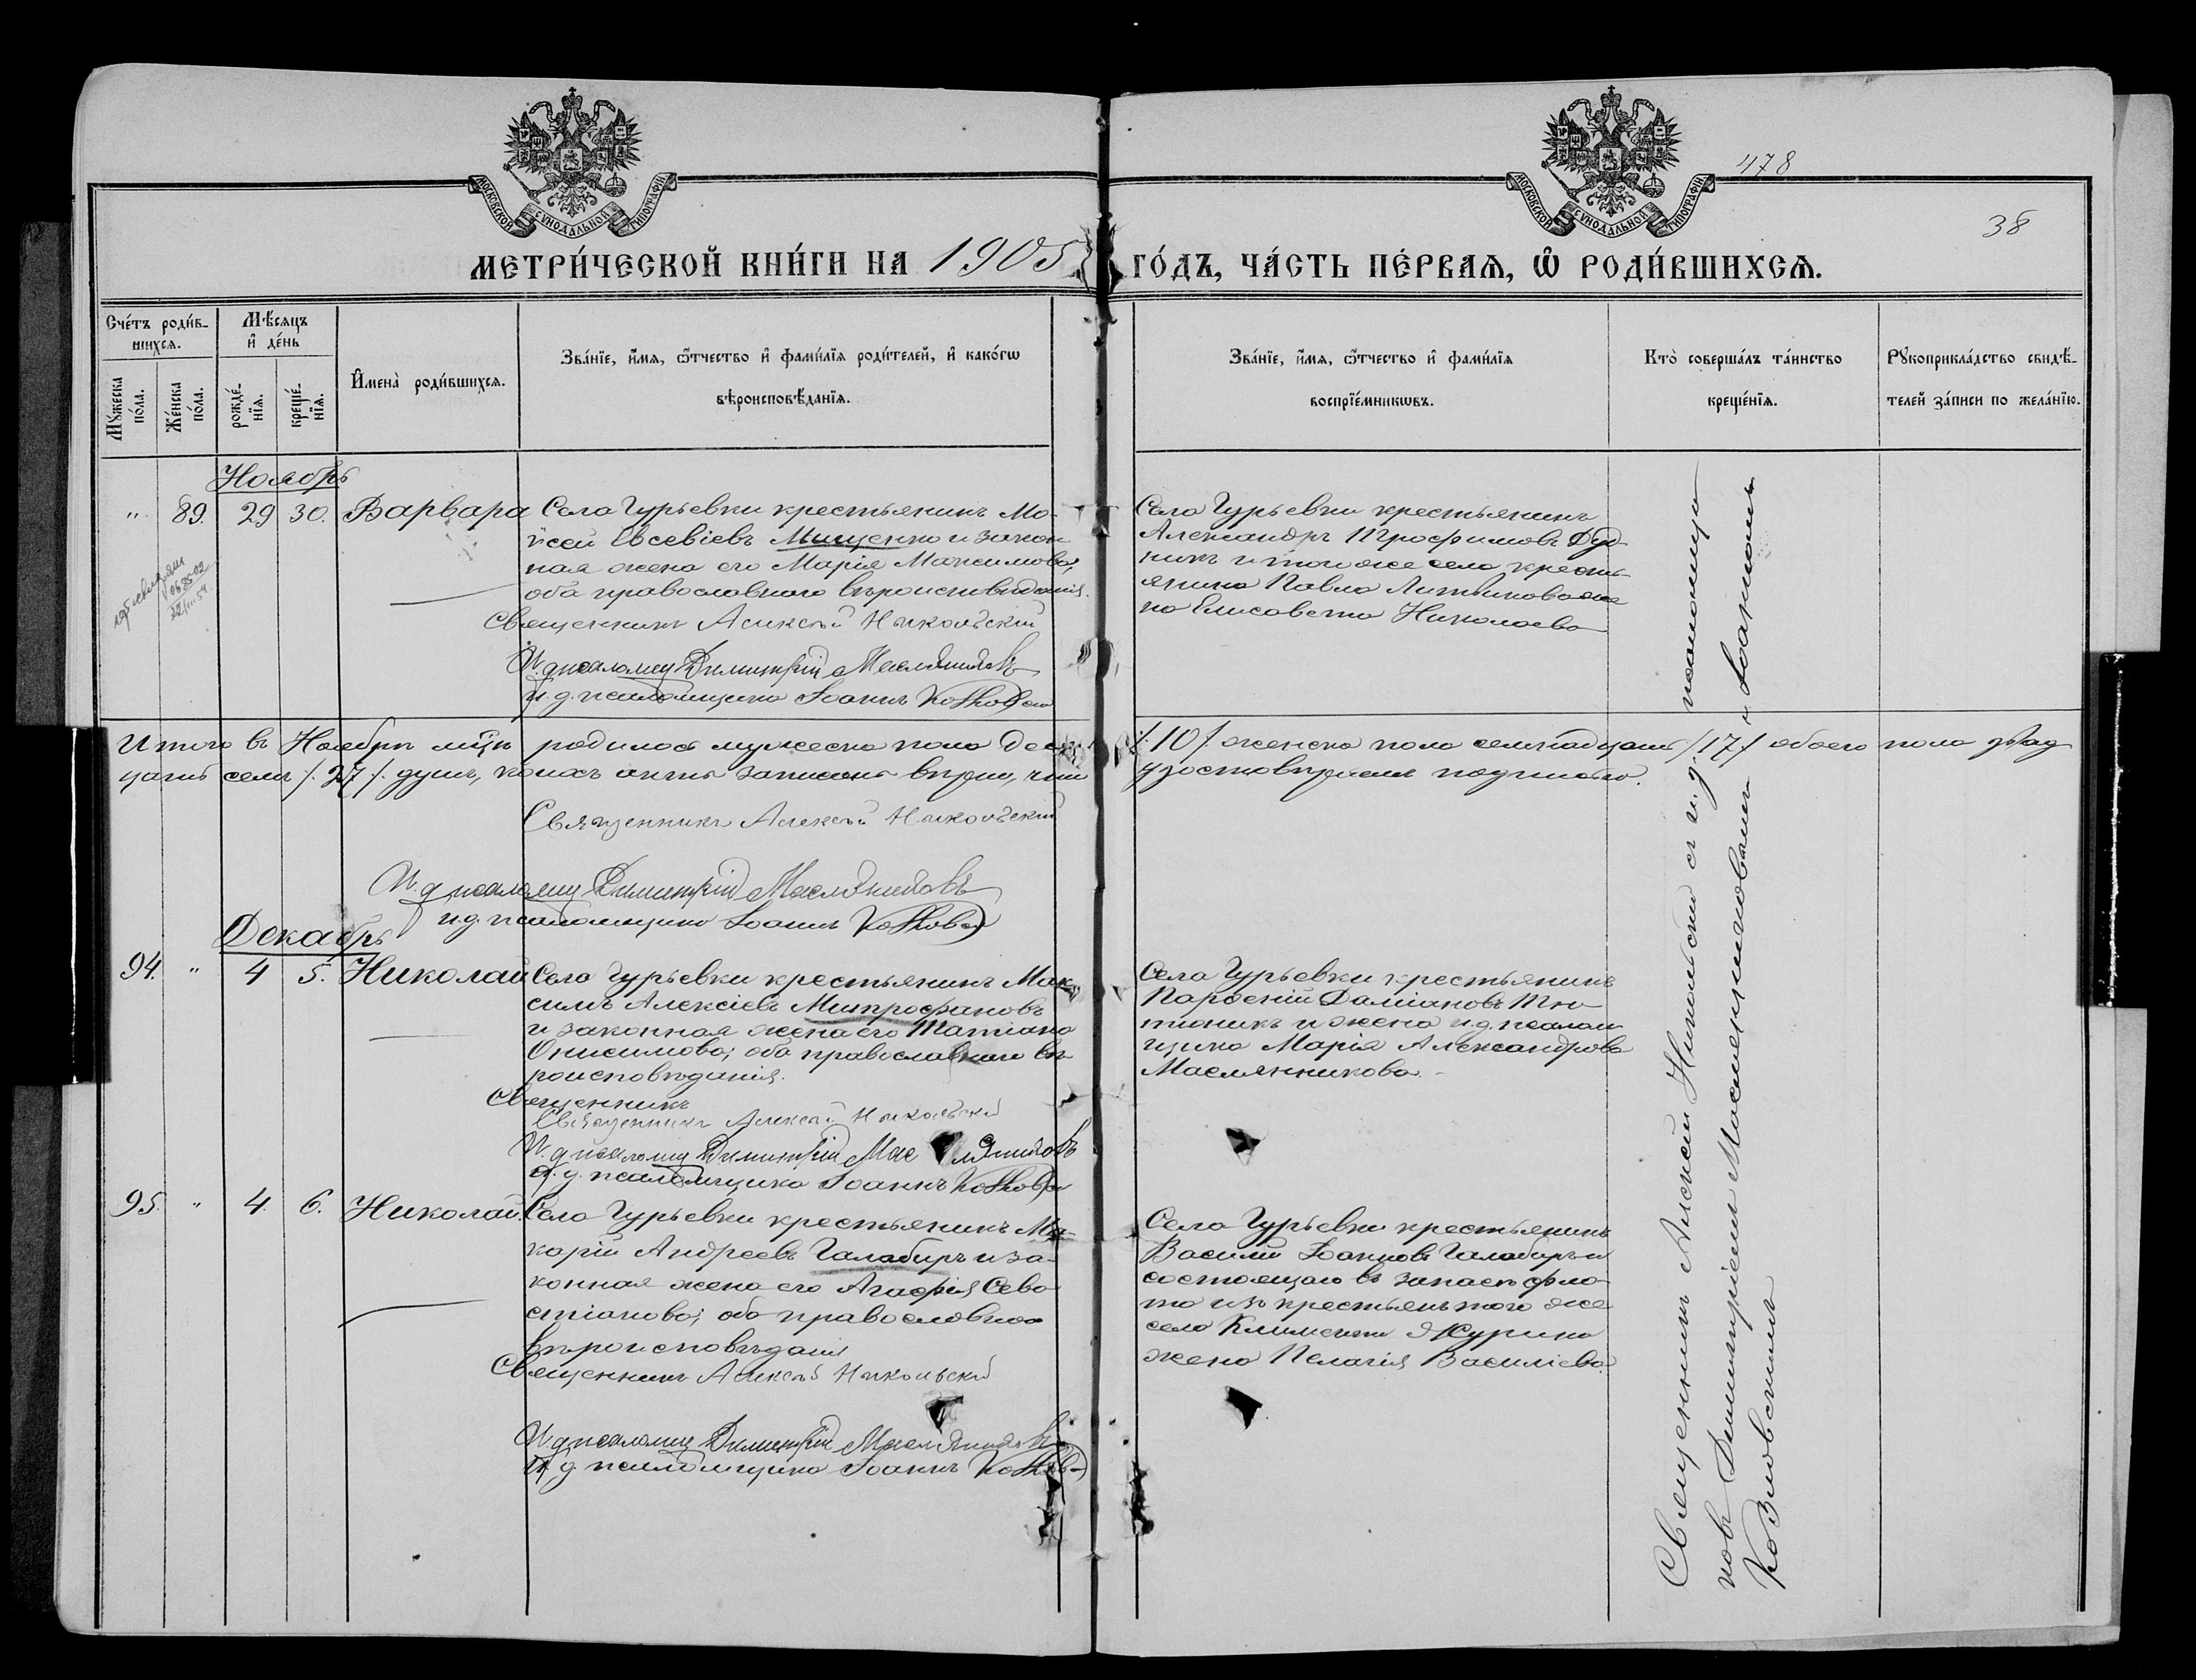 МОСКОВСКОЙ СѴНОДАЛЬНОЙ ТИПОГРАФІИ
МОСКОВСКОЙ СѴНОДАЛЬНОЙ ТИПОГРАФІИ
478
38
МЕТРИ́ЧЕСКОЙ КНИ́ГИ НА 1905 ГО́ДЪ, ЧА́СТЬ ПЕ́РВАЯ, Ѡ҆ РОДИ́ВШИХСЯ.
Сче́тъ роди́в-
шихся.
Мꙋ́жеска по́ла.
Же́нска по́ла.
Мѣ́сяцъ и҆ де́нь
рожде́-нїя.
креще́-нїя.
И҆мена̀ роди́вшихся.
Зва́нїе, и҆́мя, ѻ҆́тчество и҆ фами́лїя роди́телей, и҆ како́гѡ
вѣроисповѣ́данїя.
Зва́нїе, и҆́мя, ѻ҆́тчество и҆ фами́лїя
воспрїе́мникѡвъ.
Кто̀ соверша́лъ та́инство
креще́нїя.
Рꙋкоприкла́дство свидѣ́-
телей за́писи по жела́нїю.
Ноябрь
" 89. 29 30. Варвара
Села Гурьевки крестьянинъ Мо-
ѵсей Евсевіевъ Мищенко и закон
ная жена его Марія Максимова,
оба православнаго вѣроисповѣданія.
Священникъ Алексѣй Никольскій
И. д. псаломщ Димитрій Маслянниковъ
и. д. псаломщика Іоаннъ
Села Гурьевки крестьянинъ
Александръ Трофимовъ Дуд
никъ и того же села кресть-
янина Павла Литвинова же
на Елисавета Николаева
Итого въ Ноябрѣ м-цѣ родилось мужеска пола деся /.10/. женска пола семнадцать /17./ обоего пола двад
цать семь /. 27 /. душъ, коихъ актъ записанъ вѣрно, чт удостовѣряемъ подписью.
Священникъ Алексѣй Никольскій
И. д. псаломщ Димитрій Маслянниковъ
и. д. псаломщика Іоаннъ
Декабрь
94. " 4 5. Николай
Села Гурьевки крестьянинъ Мак
симъ Алексіевъ Митрофановъ
и законная жена его Татіана
Онисимова; оба православнаго вѣ
роисповѣданія.
Священникъ
Священникъ Алексѣй Никольскій
И. д. псаломщ Димитрій Мас лянниковъ
и. д. псаломщика Іоаннъ
Села Гурьевки крестьянинъ
Парѳеній Даміановъ Тю-
тюникъ и жена и. д. псалом
щика Марія Александрова
Маслянникова.
95. " 4. 6. Николай.
Села Гурьевки крестьянинъ Ма-
карій Андреевъ Галабиръ и за-
конная жена его Агафія Сева
стіанова; оба православнаго
вѣроисповѣданія
Священникъ Алексѣй Никольскій
И. д. псаломщ Димитрій Маслянниковъ
и. д. псаломщика Іоаннъ
Села Гурьевки крестьянинъ
Василій Іоанновъ Галабиръ и
состоящаго въ запасѣ фло-
та изъ крестьянъ того же
села Климента Яжурина
жена Пелагія Василіева.
Священникъ Алексѣй Никольскій съ и. д. псаломщи
ковъ Димитріемъ Маслянниковымъ и Іоанномъ
Козловскимъ